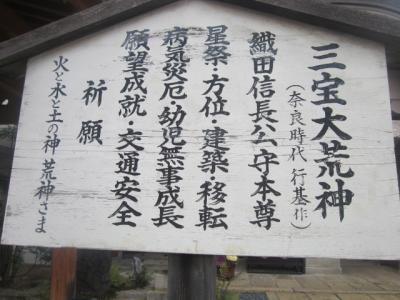 三宝大荒神
（奈良時代 行基作）
織田信長公守本尊
星祭・方位・建築・移転
病気災厄・幼児無事成長
願望成就・交通安全
祈願
火と水と土の神 荒神さま